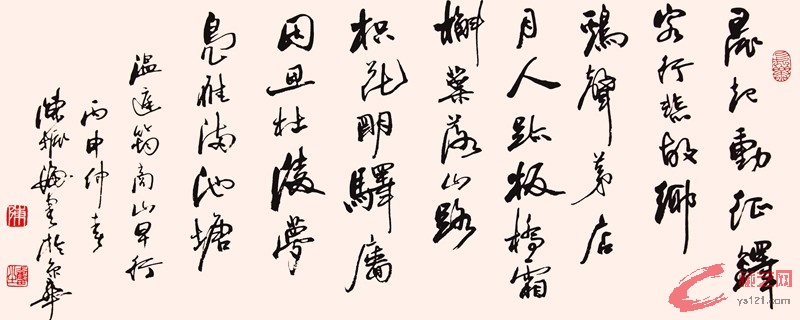 晨起動征鐸
客行悲故鄉
鷄聲茅店
月人跡板橋霜
槲葉落山路
枳花明驛牆
因思杜陵夢
鳧雁滿池塘
溫庭筠商山早行
丙申仲春
書於京華
艺网
ys121.com